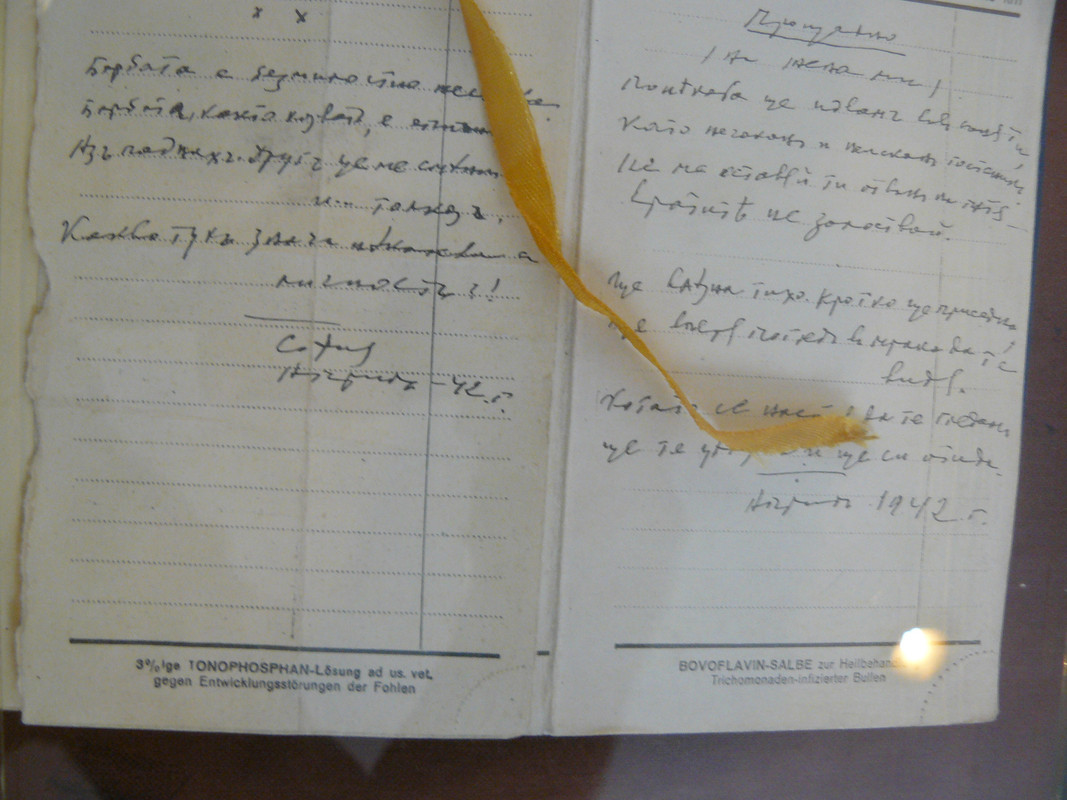 х х
Борбата е безмилостно
Борбата, както казват, е епична
Азъ паднахъ. Другъ ще ме смени
и... толкозъ.
Какво тукъ значи някаква си
личность?!
София
Априлъ - 42 г.
Прощално
/ На жена ми /
Понѣкога ще идвамъ въвъ съня ти,
Като нечаканъ и неисканъ гостенинъ.
Не ме оставяй ти отвънъ на пѫтя –
Вратитѣ не залоствай.
Ще влѣзна тихо. Кротко ще приседна
Ще вперя погледъ в мрака да те
видя.
Когато се да те гледамъ
ще те и ще си отида.
Априлъ 1942 г.
3%ige TONOPHOSPHAN-Lösung ad us. vet.
gegen Entwicklungsstörungen der Fohlen
BOVOFLAVIN-SALBE zur
Trichomonaden-infizierter Bullen